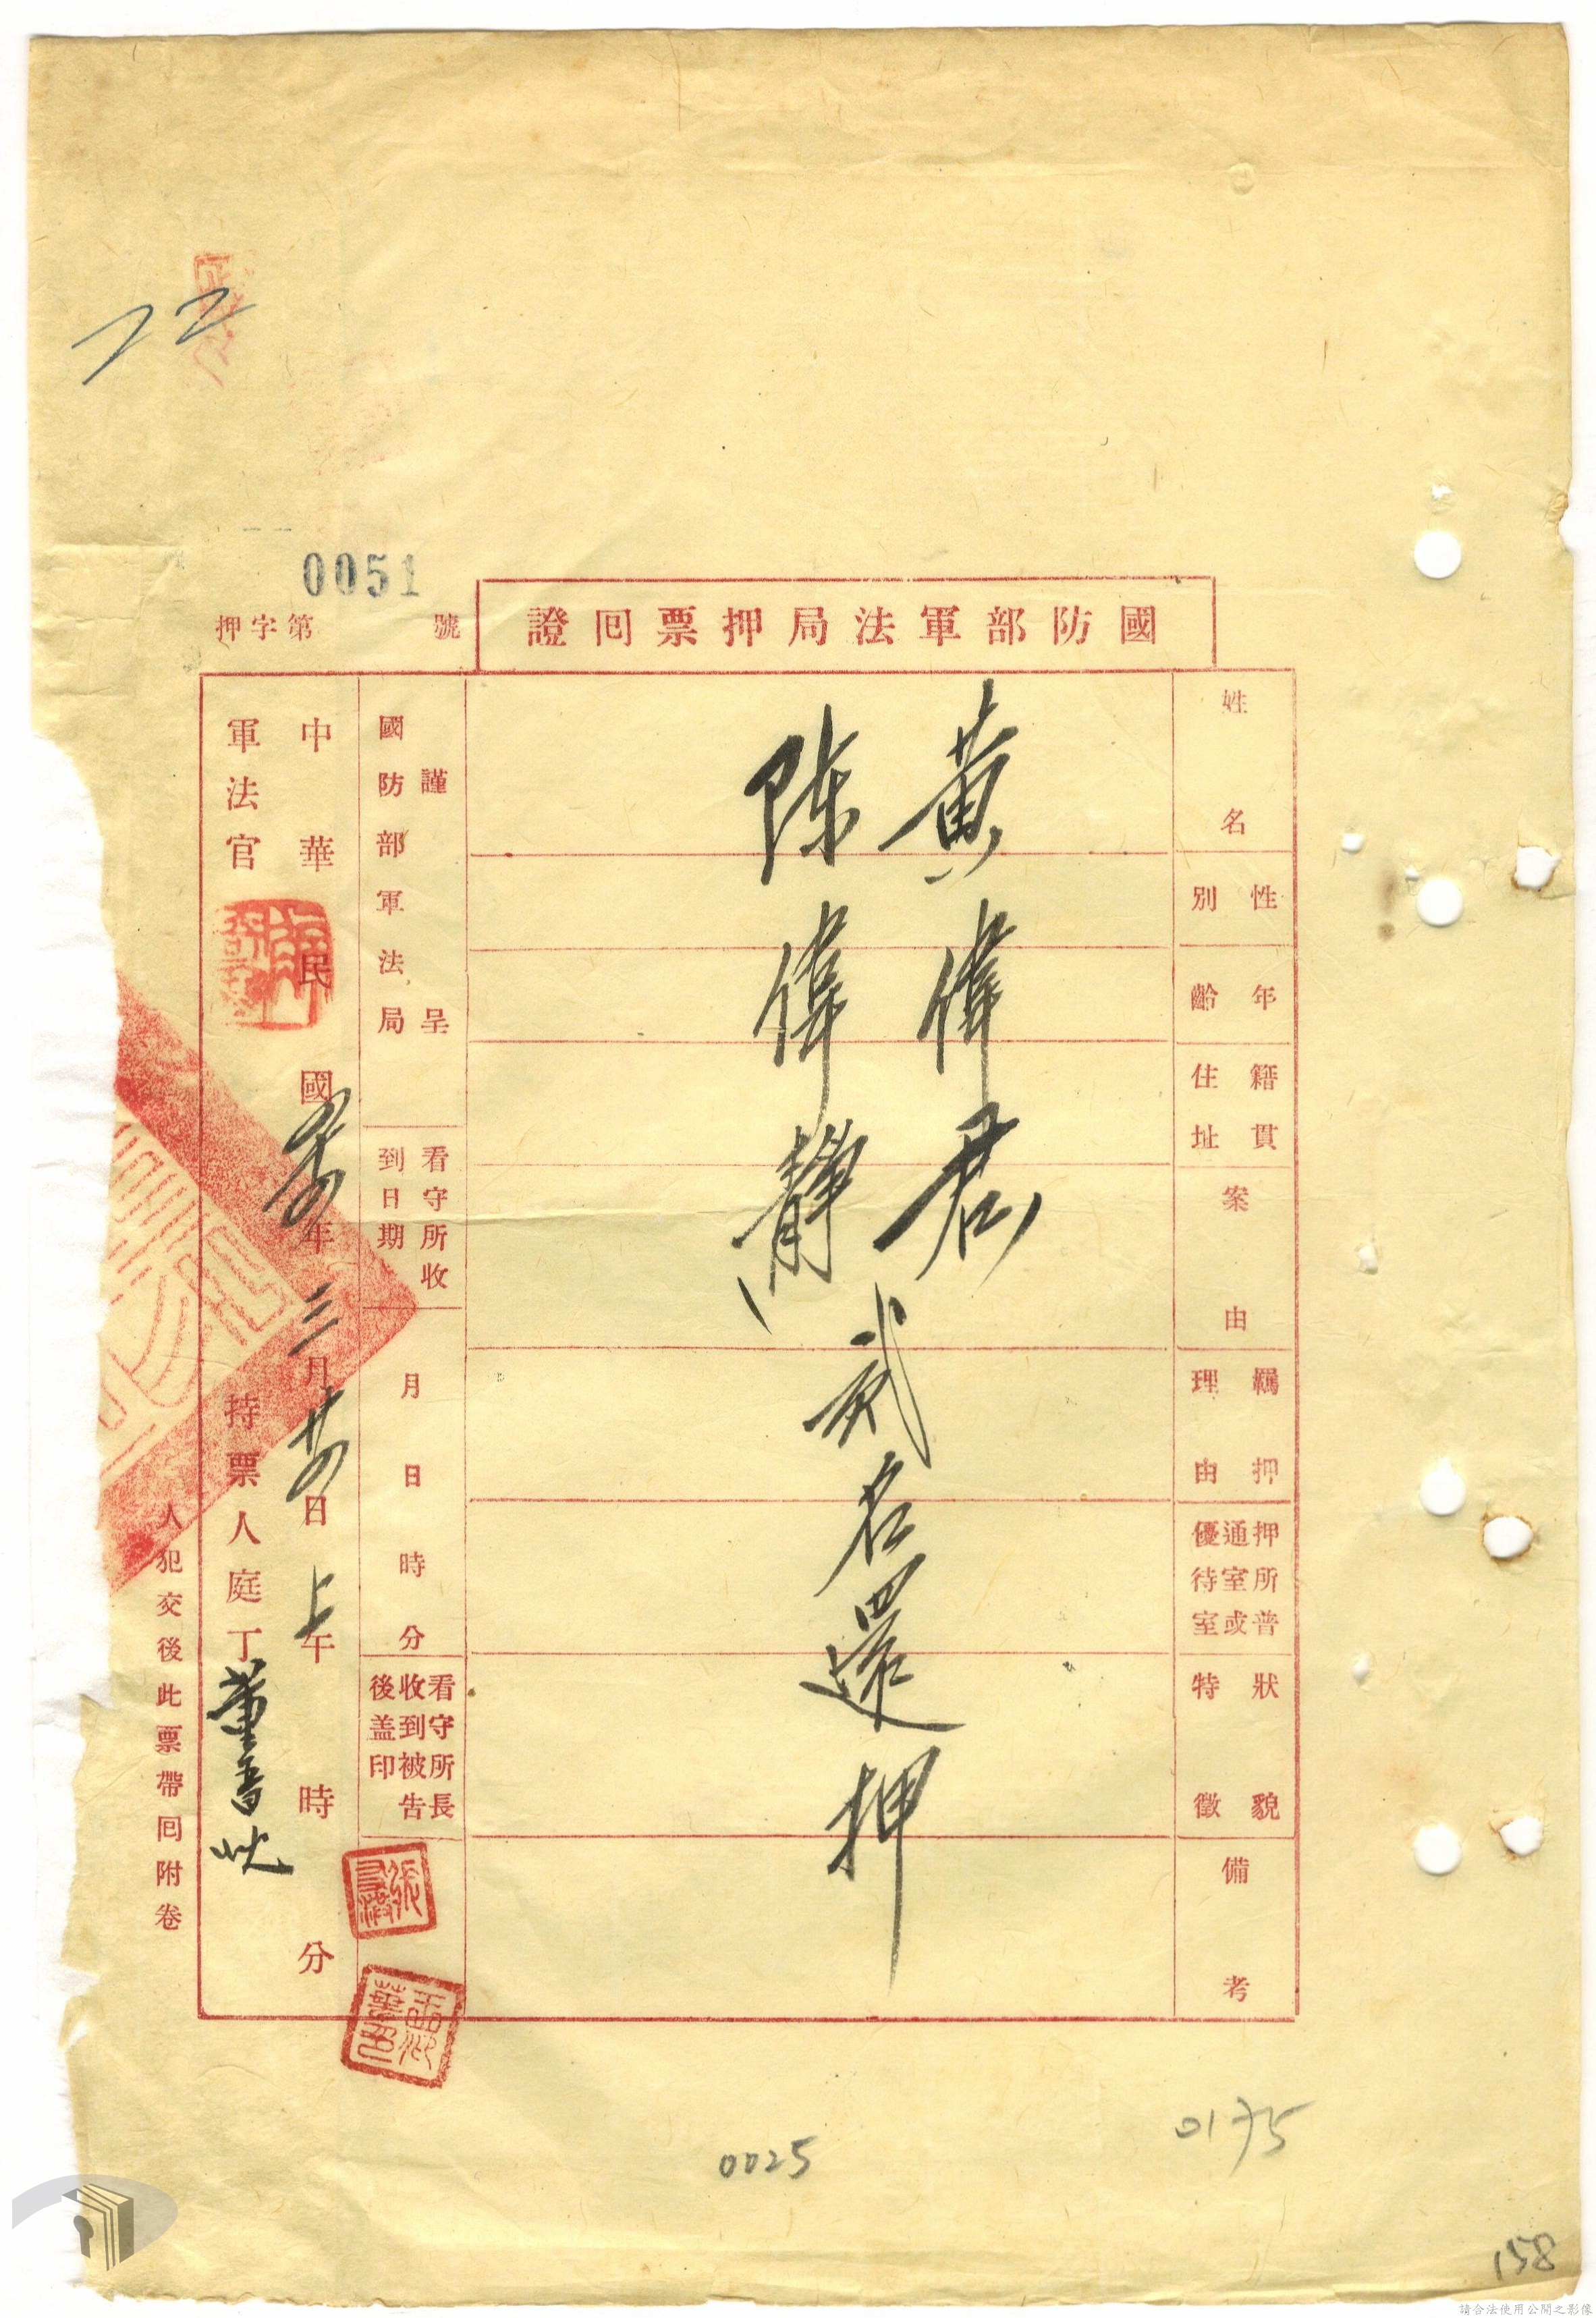 國防部軍法局押票回證
押字第0051號
姓名
性別
年齡
籍貫住址
案由
羈押理由
押所普通室或優待室
狀貌特徵
備考
黃偉君
陳偉靜
貳名還押
謹呈
國防部軍法局
看守所收到日期
月日時分
看守所長收到被告後盖印
中華民國
年三月廿四日上午時分
軍法官
持票人庭丁董
人犯交後此票帶回附卷
0025
0175
158
請合法使用公開之影像